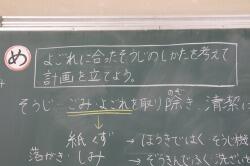 め
よごれに合ったそうじのしかたを考えて
計画を立てよう。
そうじ…ごみ・よごれを取り除き、清潔に
のぞ
紙くず → ほうきではく そうじ機
落がき・しみ → ぞうきんでふく 洗